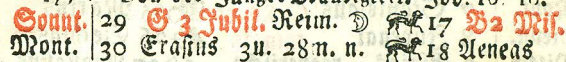 Sonnt. 29 G 3 Jubil. Reim. ☽ 17 B2 Mis.
Mont. 30 Erastus 3u. 28m. n. 18 Aeneas